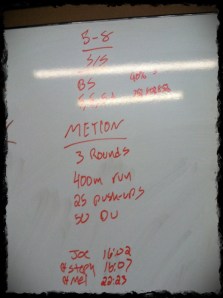 5-8
S/S
BS
METCON
3 ROUNDS
400m run
25 PUSH-UPS
50 DU
JOE 16:02
#Steph 18:07
#Mel 22:23